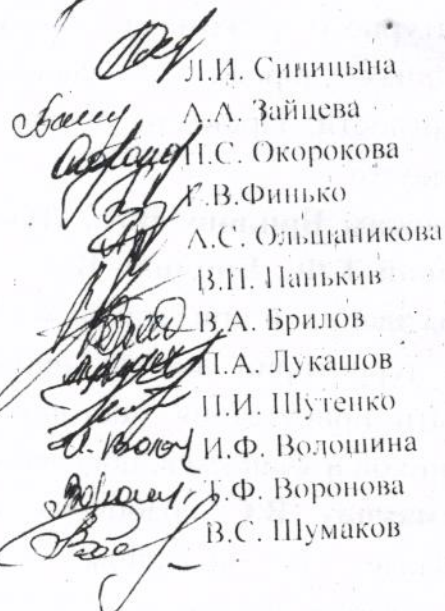 Л.И. Синицына
А.А. Зайцева
Н.С. Окорокова
Г.В.Финько
А.С. Ольшаникова
В.П. Панькив
В.А. Брилов
П.А. Лукашов
Н.И. Шутенко
И.Ф. Волошина
Т.Ф. Воронова
В.С. Шумаков